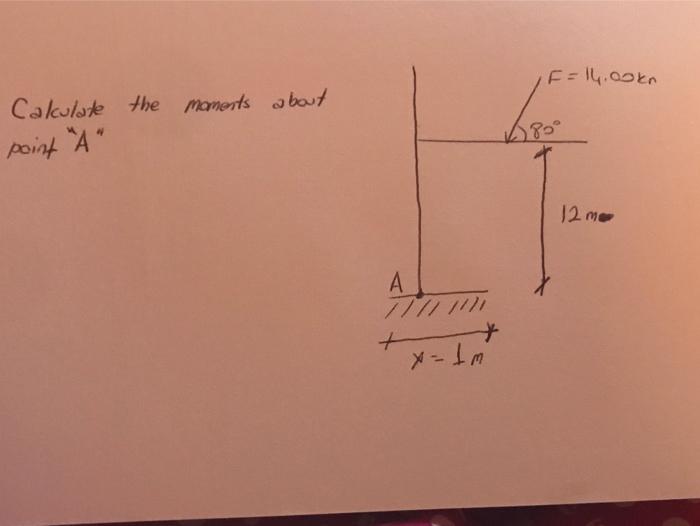 Calculate the moments about
point "A"
F = 14.00kn
80°
12m
A
x = 1m